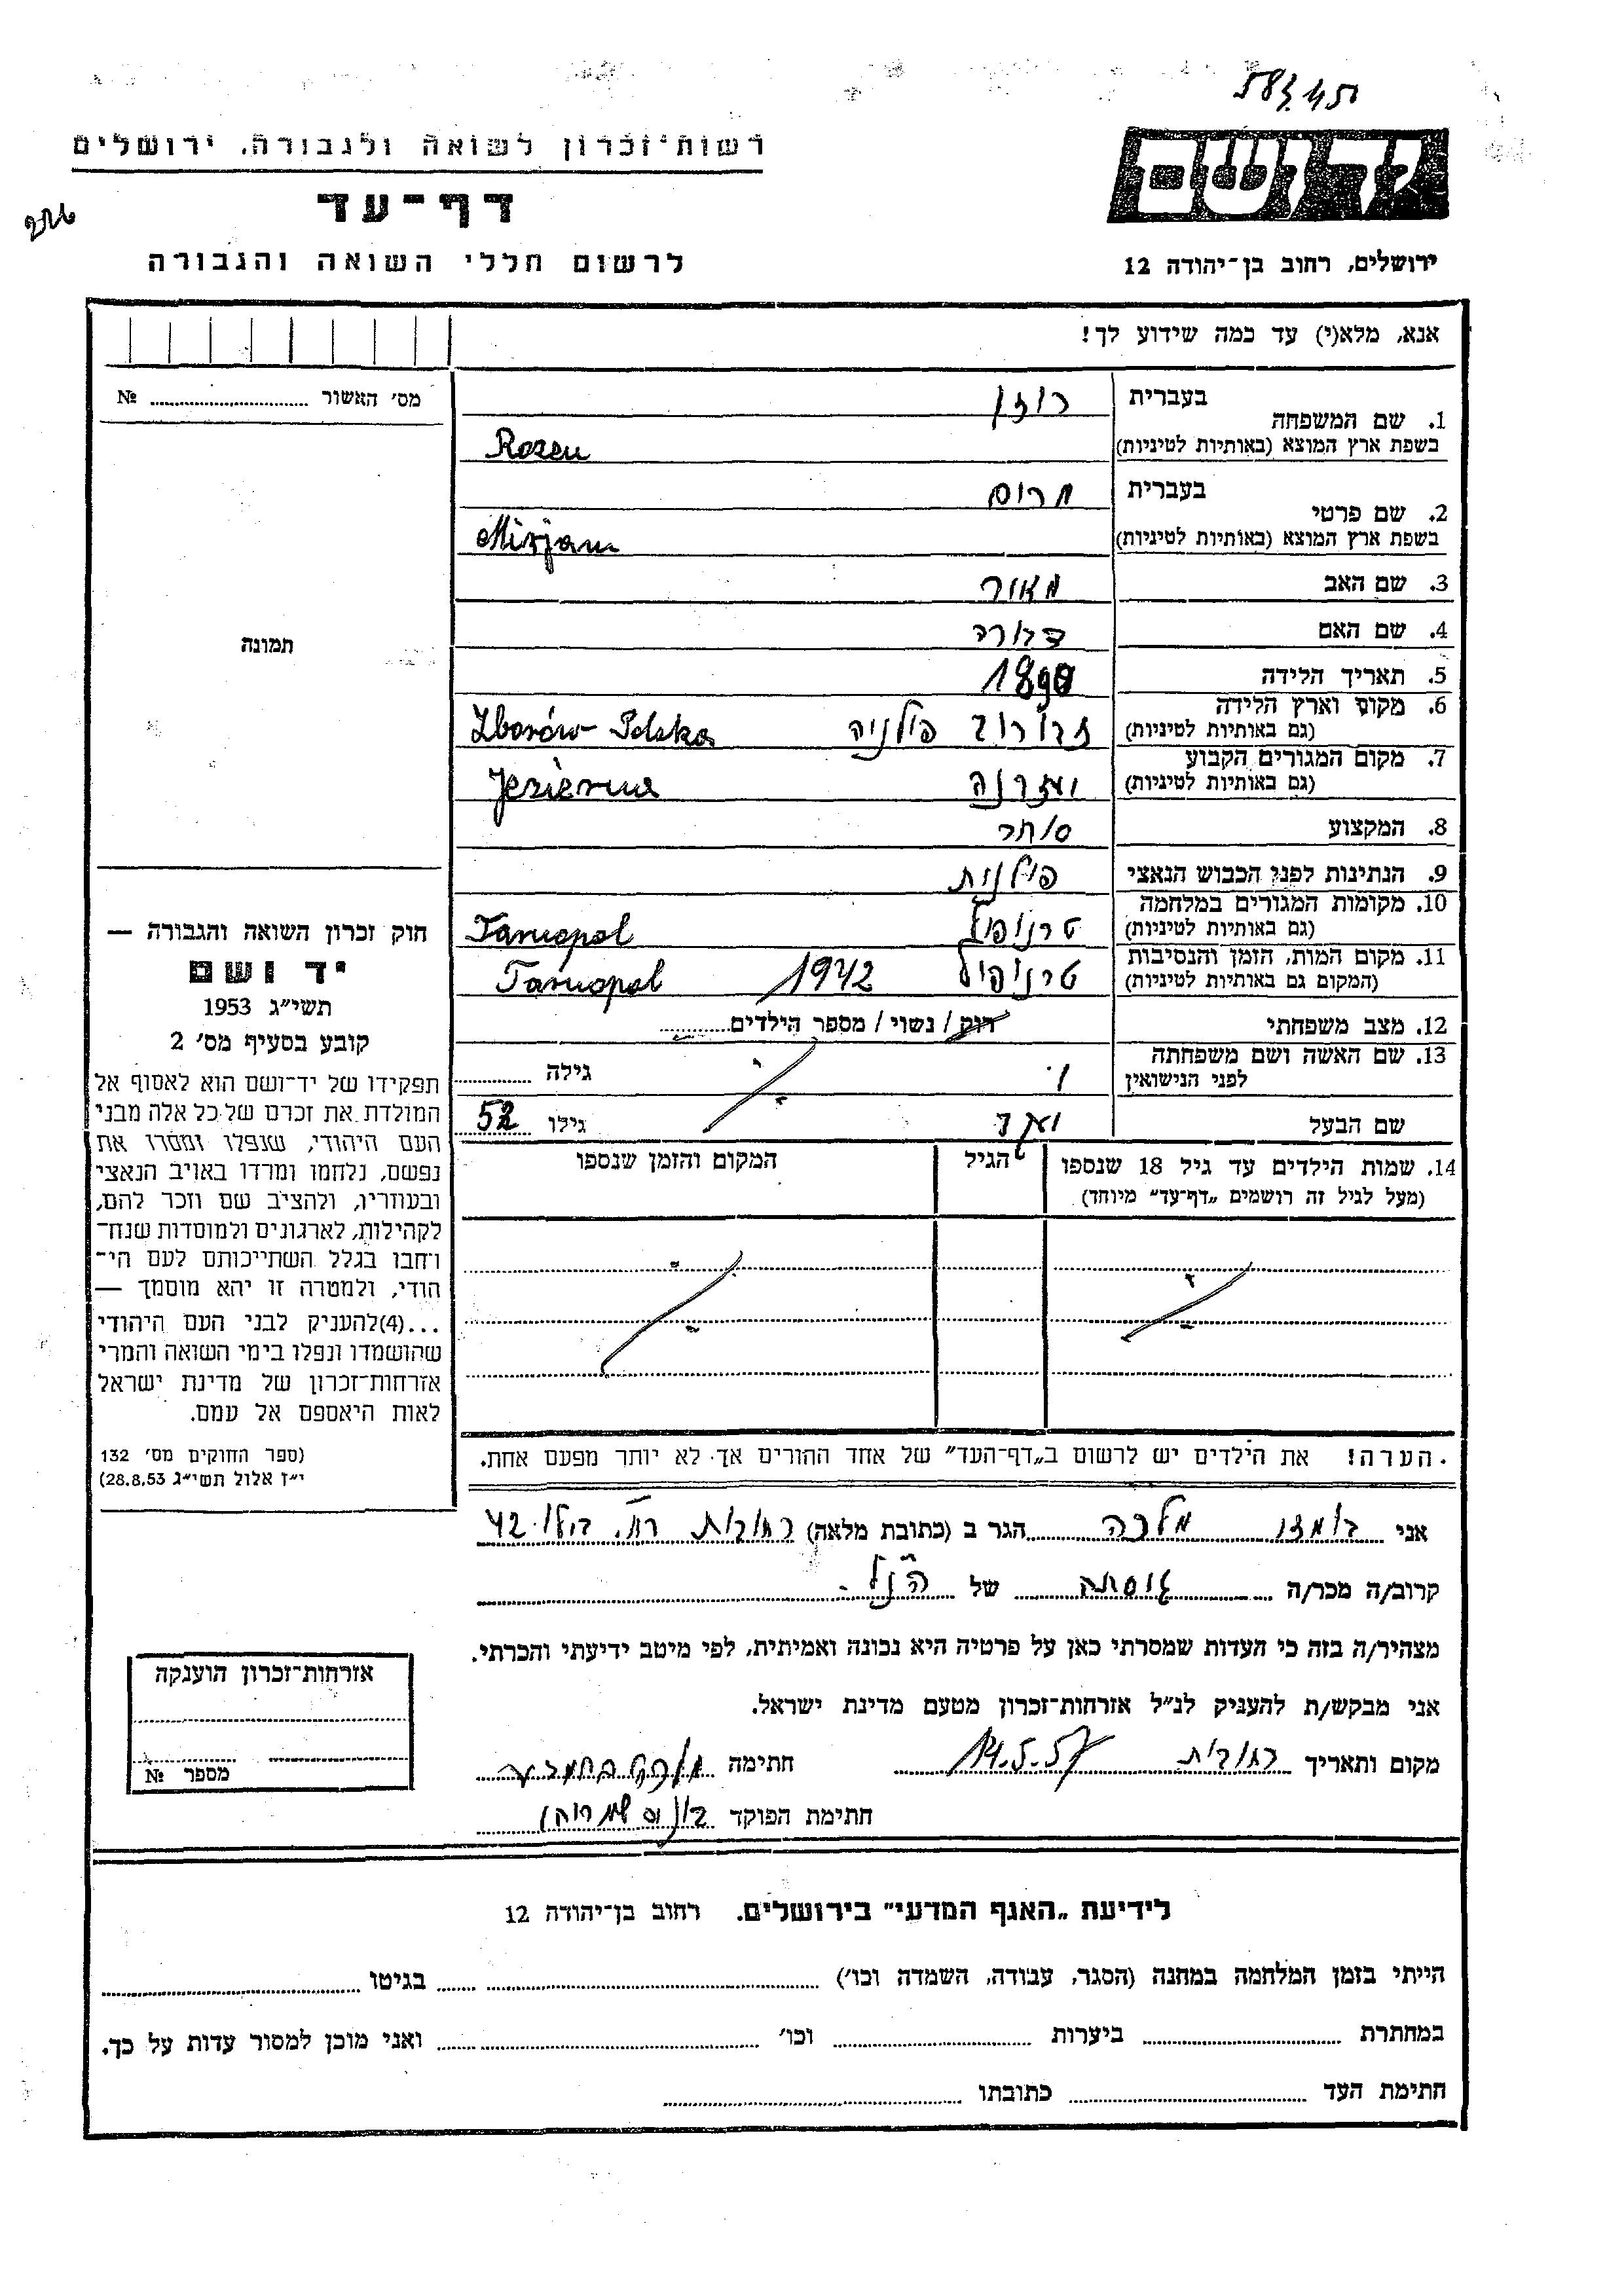 583.45
רשות־זכרון לשואה ולגבורה, ירושלים
דף־עד
לרשום חללי השואה והגבורה
יד ושם
ירושלים, רחוב בן־יהודה 12
אנא, מלא(י) עד כמה שידוע לך!
מס׳ האשור № 
1. שם המשפחה בעברית רוזן
בשפת ארץ המוצא (באותיות לטיניות) Rozen
2. שם פרטי בעברית מרים
בשפת ארץ המוצא (באותיות לטיניות) Mirjam
3. שם האב מאיר
4. שם האם דבורה
5. תאריך הלידה 1890
6. מקום וארץ הלידה (גם באותיות לטיניות) זבורוב פולניה Zborów-Polska
7. מקום המגורים הקבוע (גם באותיות לטיניות) יזירנה Jezierna
8. המקצוע סוחר
9. הנתינות לפני הכבוש הנאצי פולנית
10. מקומות המגורים במלחמה (גם באותיות לטיניות) טרנופול Tarnopol
11. מקום המות, הזמן והנסיבות (המקום גם באותיות לטיניות) טרנופול 1942 Tarnopol
12. מצב משפחתי רוק / נשוי / מספר הילדים
13. שם האשה ושם משפחתה לפני הנישואין גילה
שם הבעל גילו 52
14. שמות הילדים עד גיל 18 שנספו
(מעל לגיל זה רושמים „דף־עד״ מיוחד)
הגיל
המקום והזמן שנספו
הערה! את הילדים יש לרשום ב„דף־העד״ של אחד ההורים אך לא יותר מפעם אחת.
תמונה
חוק זכרון השואה והגבורה —
יד ושם
תשי״ג 1953
קובע בסעיף מס׳ 2
תפקידו של יד־ושם הוא לאסוף אל
המולדת את זכרם של כל אלה מבני
העם היהודי, שנפלו ומסרו את
נפשם, נלחמו ומרדו באויב הנאצי
ובעוזריו, ולהציב שם וזכר להם,
לקהילות, לארגונים ולמוסדות שנח־
רבו בגלל השתייכותם לעם הי־
הודי, ולמטרה זו יהא מוסמך —
...(4)להעניק לבני העם היהודי
שהושמדו ונפלו בימי השואה והמרי
אזרחות־זכרון של מדינת ישראל
לאות היאספם אל עמם.
(ספר החוקים מס׳ 132
י״ז אלול תשי״ג 28.8.53)
אני מלכה הגר ב (כתובת מלאה) רחובות רח. 42
קרוב/ה מכר/ה גיסתה של הנ״ל
מצהיר/ה בזה כי העדות שמסרתי כאן על פרטיה היא נכונה ואמיתית, לפי מיטב ידיעתי והכרתי.
אני מבקש/ת להעניק לנ״ל אזרחות־זכרון מטעם מדינת ישראל.
מקום ותאריך רחובות 14.5.57 חתימה
חתימת הפוקד
אזרחות־זכרון הוענקה
מספר №
לידיעת „האגף המדעי״ בירושלים. רחוב בן־יהודה 12
הייתי בזמן המלחמה במחנה (הסגר, עבודה, השמדה וכו׳) בגיטו
במחתרת ביערות וכו׳ ואני מוכן למסור עדות על כך.
חתימת העד כתובתו